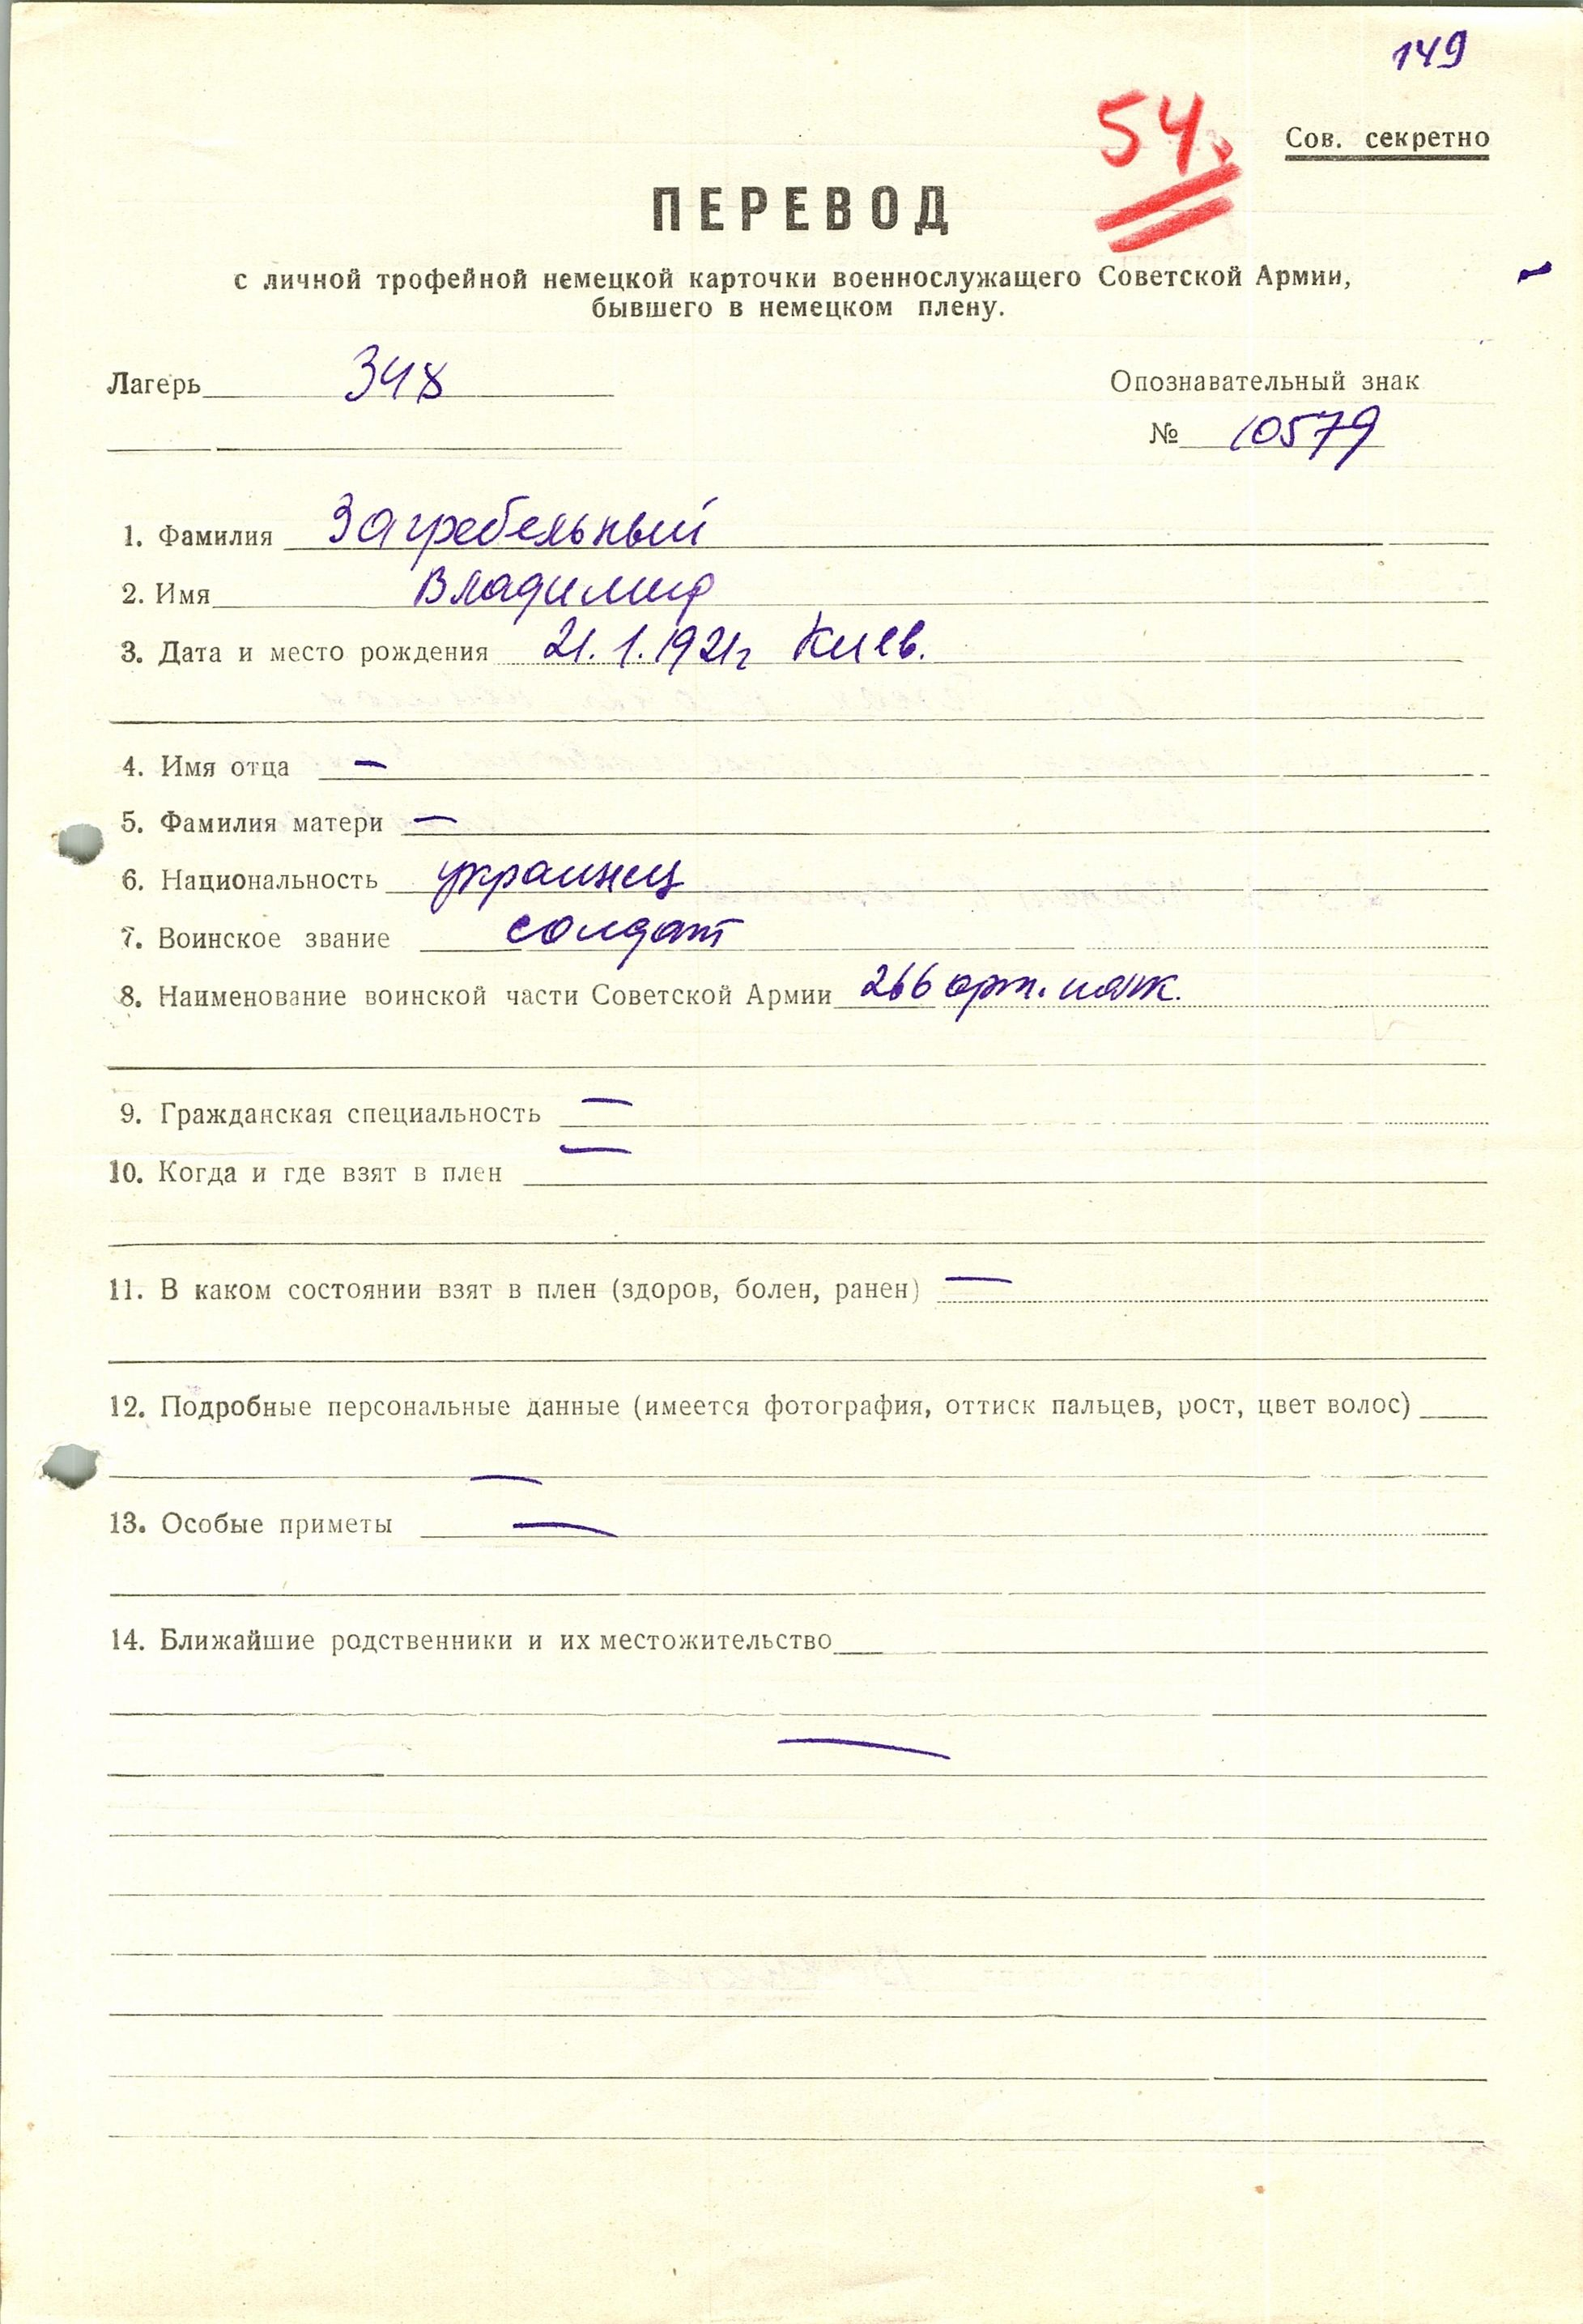 149
54.
Сов. секретно
ПЕРЕВОД
с личной трофейной немецкой карточки военнослужащего Советской Армии,
бывшего в немецком плену.
Лагерь 348
Опознавательный знак
№ 10579
1. Фамилия Загребельный
2. Имя Владимир
3. Дата и место рождения 21.1.1921г Киев.
4. Имя отца —
5. Фамилия матери —
6. Национальность украинец
7. Воинское звание солдат
8. Наименование воинской части Советской Армии 266 арт. полк.
9. Гражданская специальность —
10. Когда и где взят в плен —
11. В каком состоянии взят в плен (здоров, болен, ранен) —
12. Подробные персональные данные (имеется фотография, оттиск пальцев, рост, цвет волос)
—
13. Особые приметы —
14. Ближайшие родственники и их местожительство
—